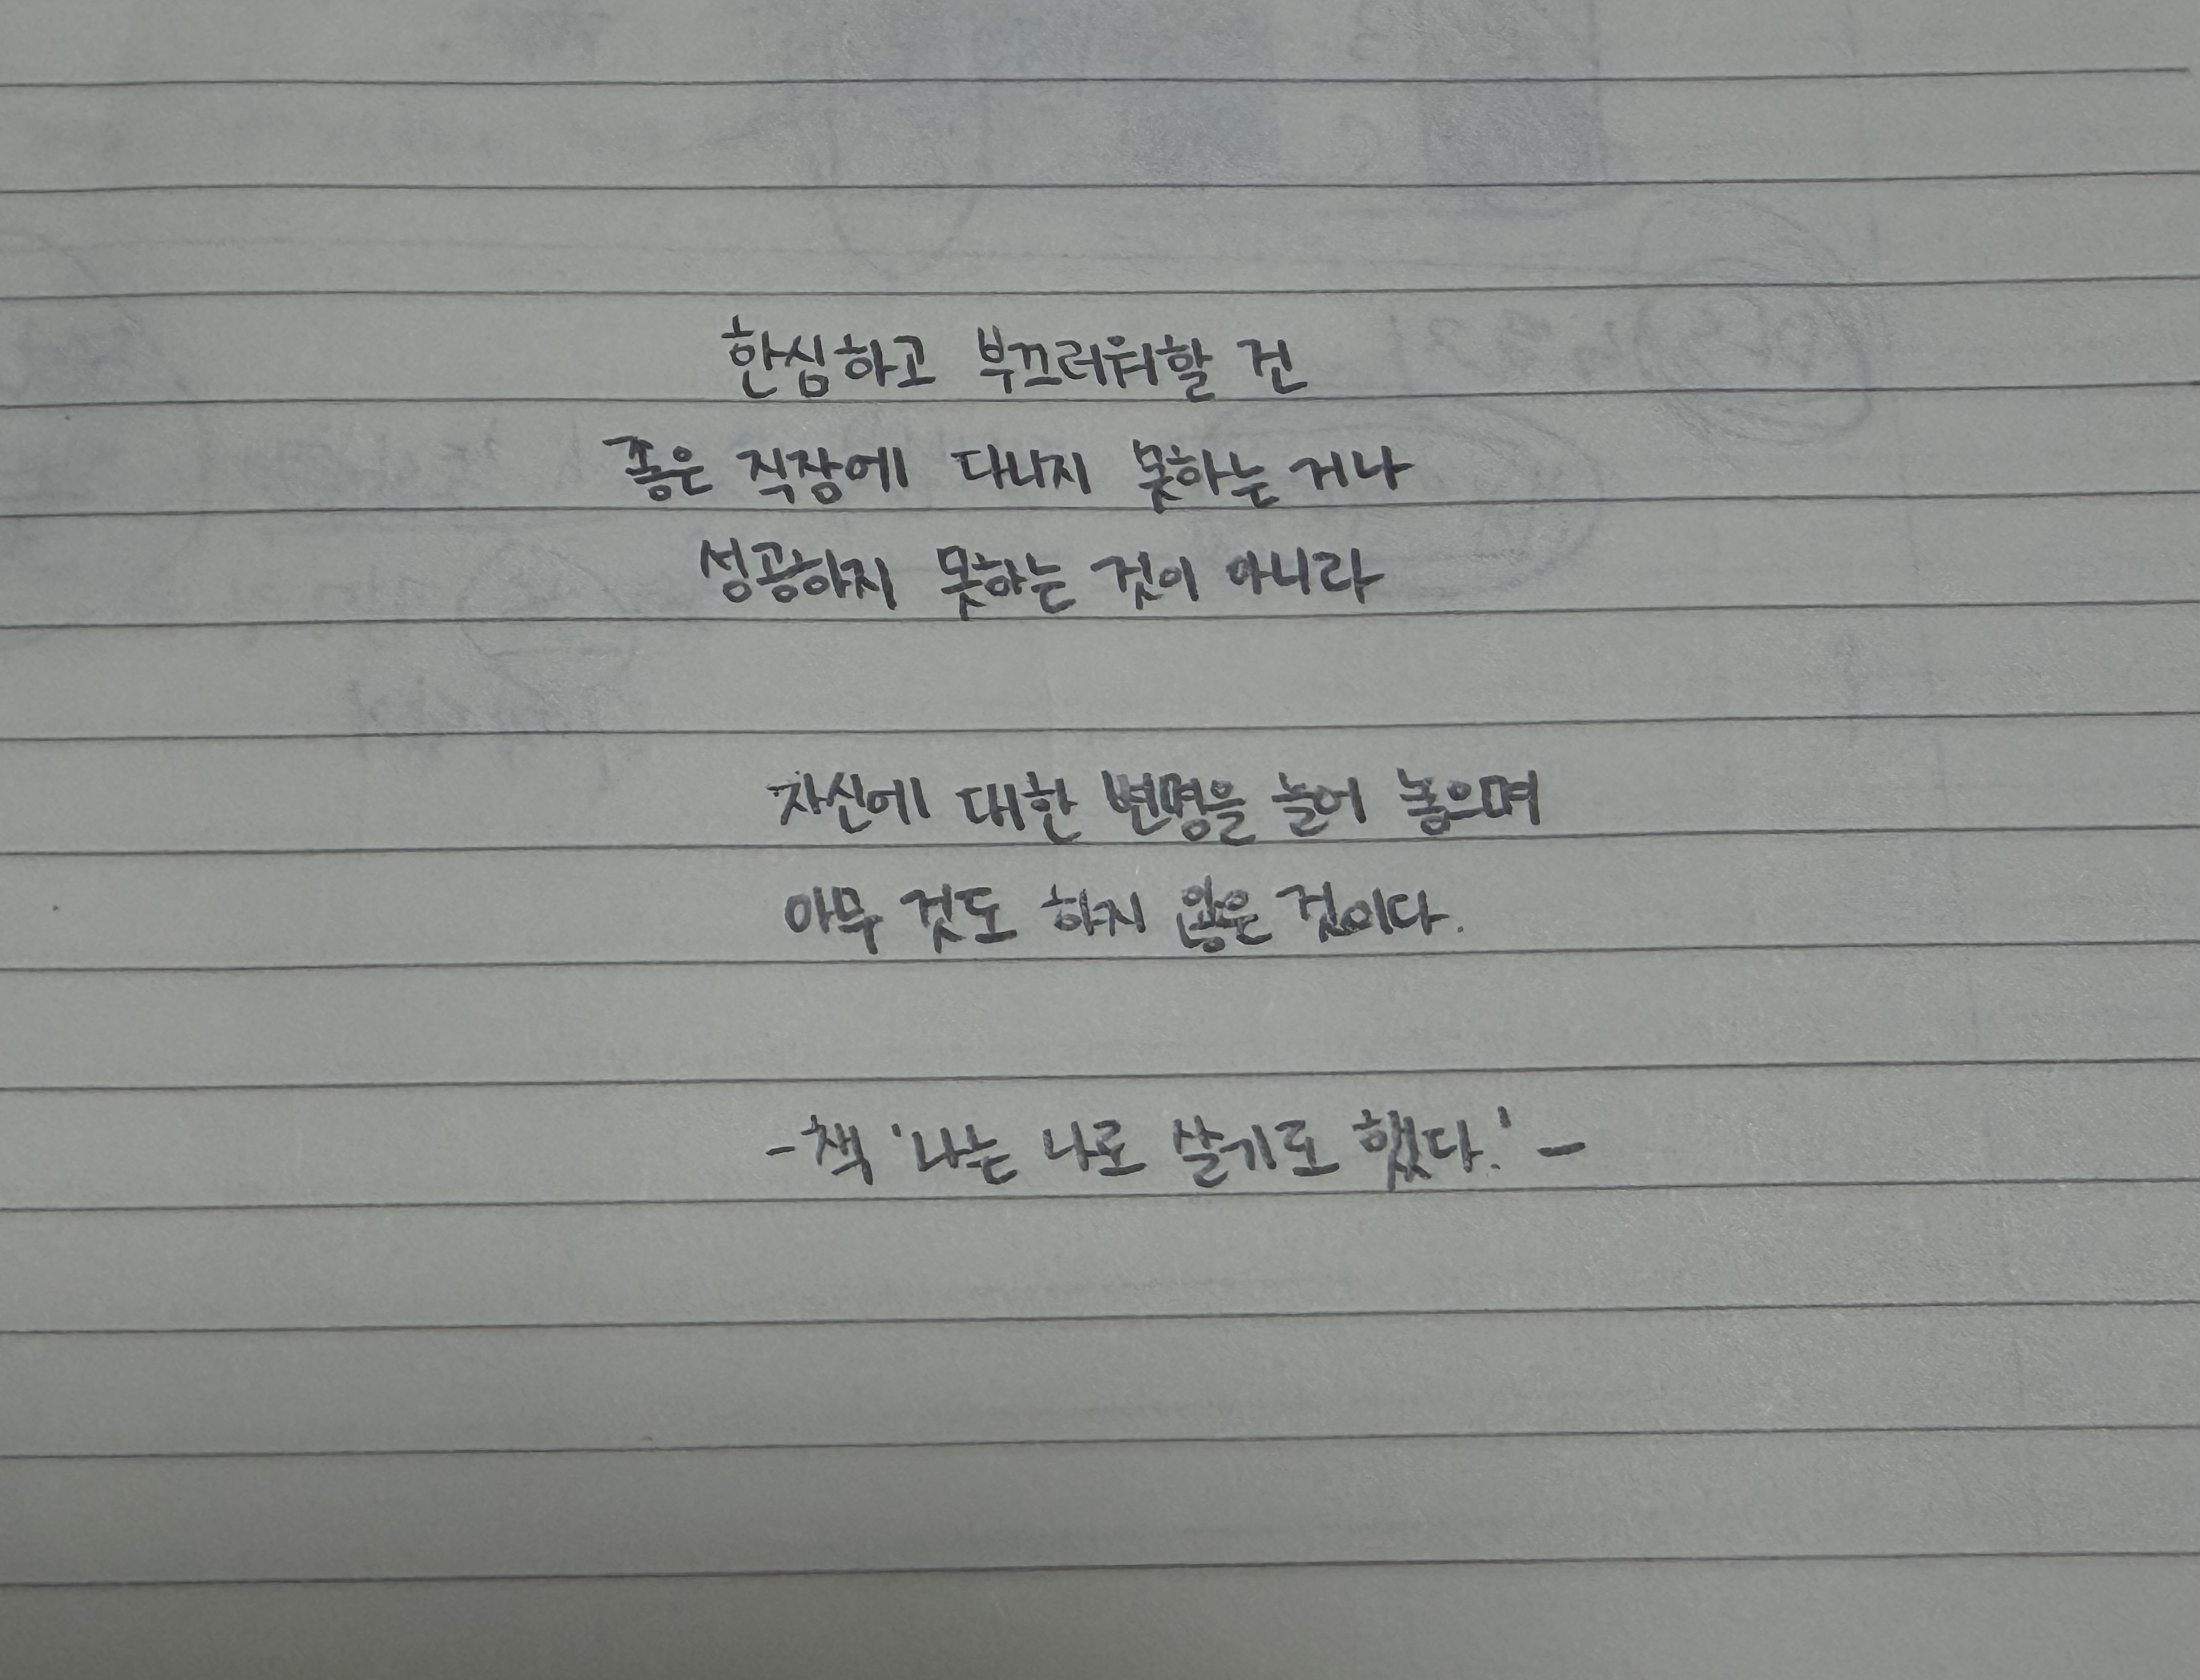 한심하고 부끄러워할 건
좋은 직장에 다니지 못하는 거나
성공하지 못하는 것이 아니라
자신에 대한 변명을 늘어 놓으며
아무 것도 하지 않은 것이다.
- 책 '나는 나로 살기로 했다.' -